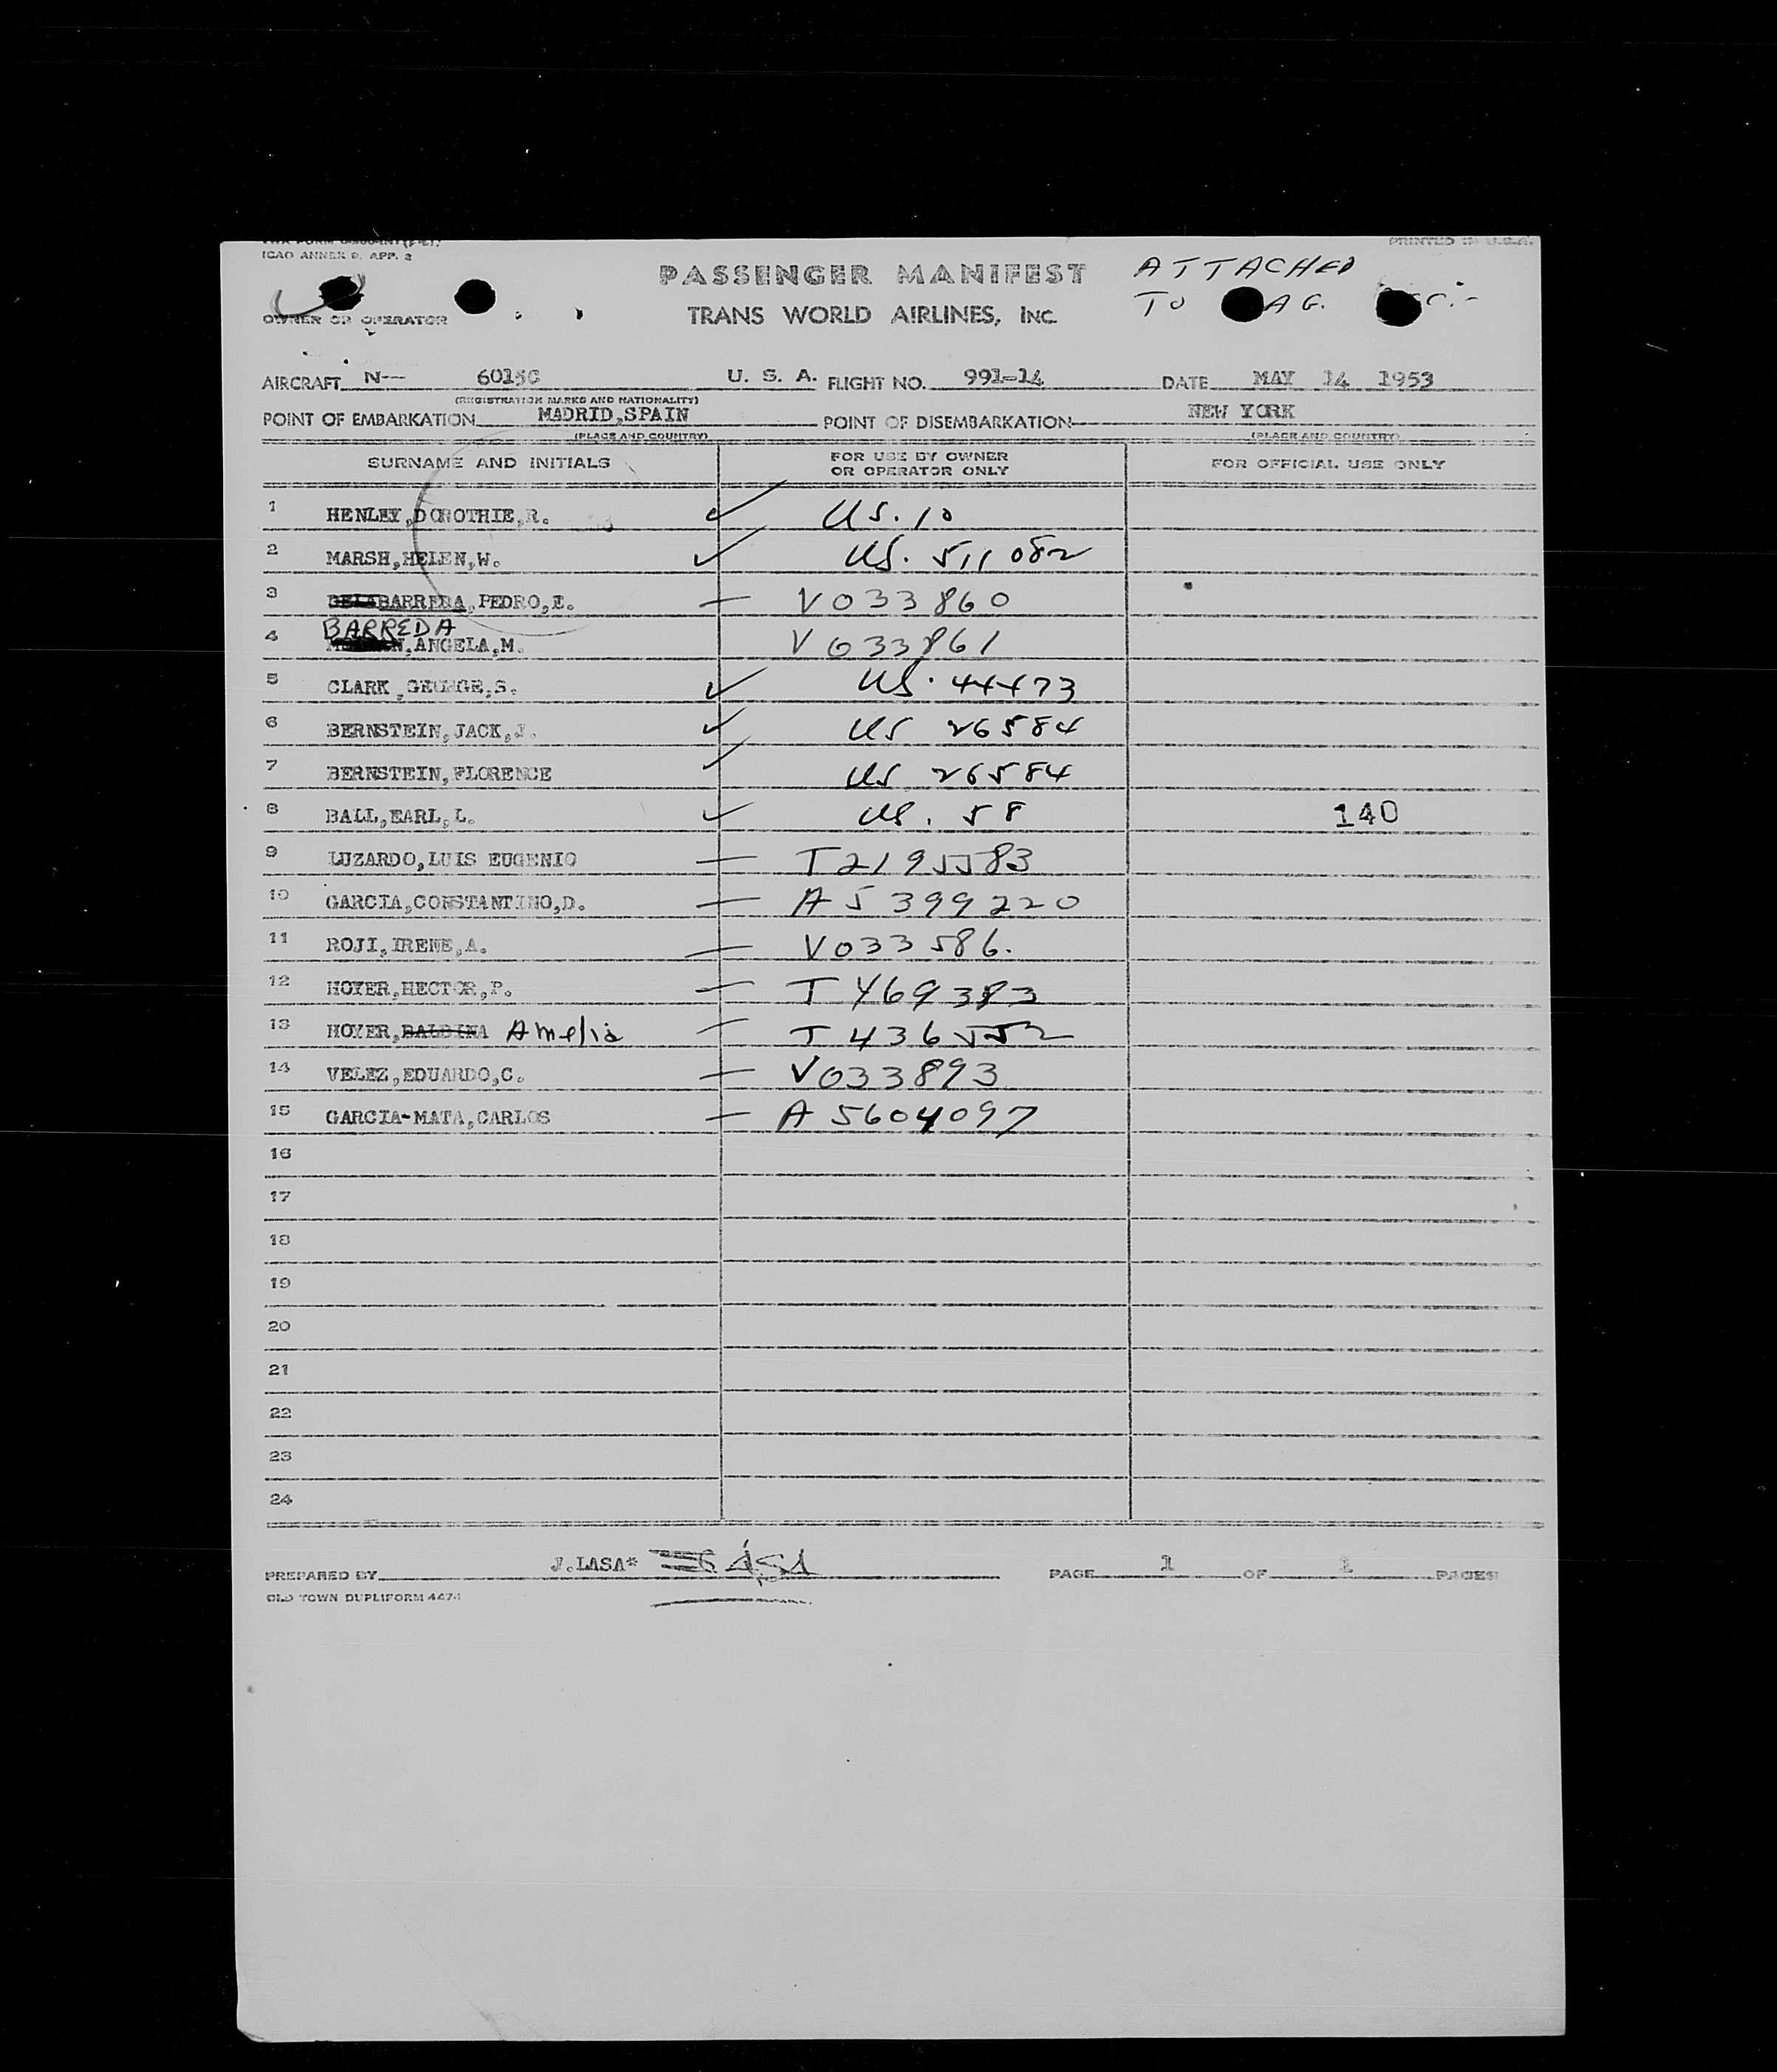 ICAO ANNEX 9, APP. 2
PRINTED IN U.S.A.
PASSENGER MANIFEST
ATTACHED
TO AG.
OWNER OR OPERATOR
TRANS WORLD AIRLINES, INC.
AIRCRAFT N-- 6015C U. S. A. FLIGHT NO. 991-14 DATE MAY 14 1953
(REGISTRATION MARKS AND NATIONALITY)
POINT OF EMBARKATION MADRID,SPAIN POINT OF DISEMBARKATION NEW YORK
(PLACE AND COUNTRY) (PLACE AND COUNTRY)
SURNAME AND INITIALS FOR USE BY OWNER OR OPERATOR ONLY FOR OFFICIAL USE ONLY
1 HENLEY,DOROTHIE,R. US. 10
2 MARSH,HELEN,W. US. 511082
3 DELABARREDA,PEDRO,E. V033860
BARREDA
4 ,ANGELA,M. V033861
5 CLARK,GEORGE,S. US. 44473
6 BERNSTEIN,JACK,J. US 26584
7 BERNSTEIN,FLORENCE US 26584
8 BALL,EARL,L. US. 58 140
9 LUZARDO,LUIS EUGENIO T2195583
10 GARCIA,CONSTANTINO,D. A5399220
11 ROJI,IRENE,A. V033586.
12 HOYER,HECTOR,P. T469383
13 HOYER,BALBINA Amelia T436552
14 VELEZ,EDUARDO,C. V033893
15 GARCIA-MATA,CARLOS A5604097
16
17
18
19
20
21
22
23
24
PREPARED BY J.LASA* PAGE 1 OF 1 PAGES
OLD TOWN DUPLIFORM 4474